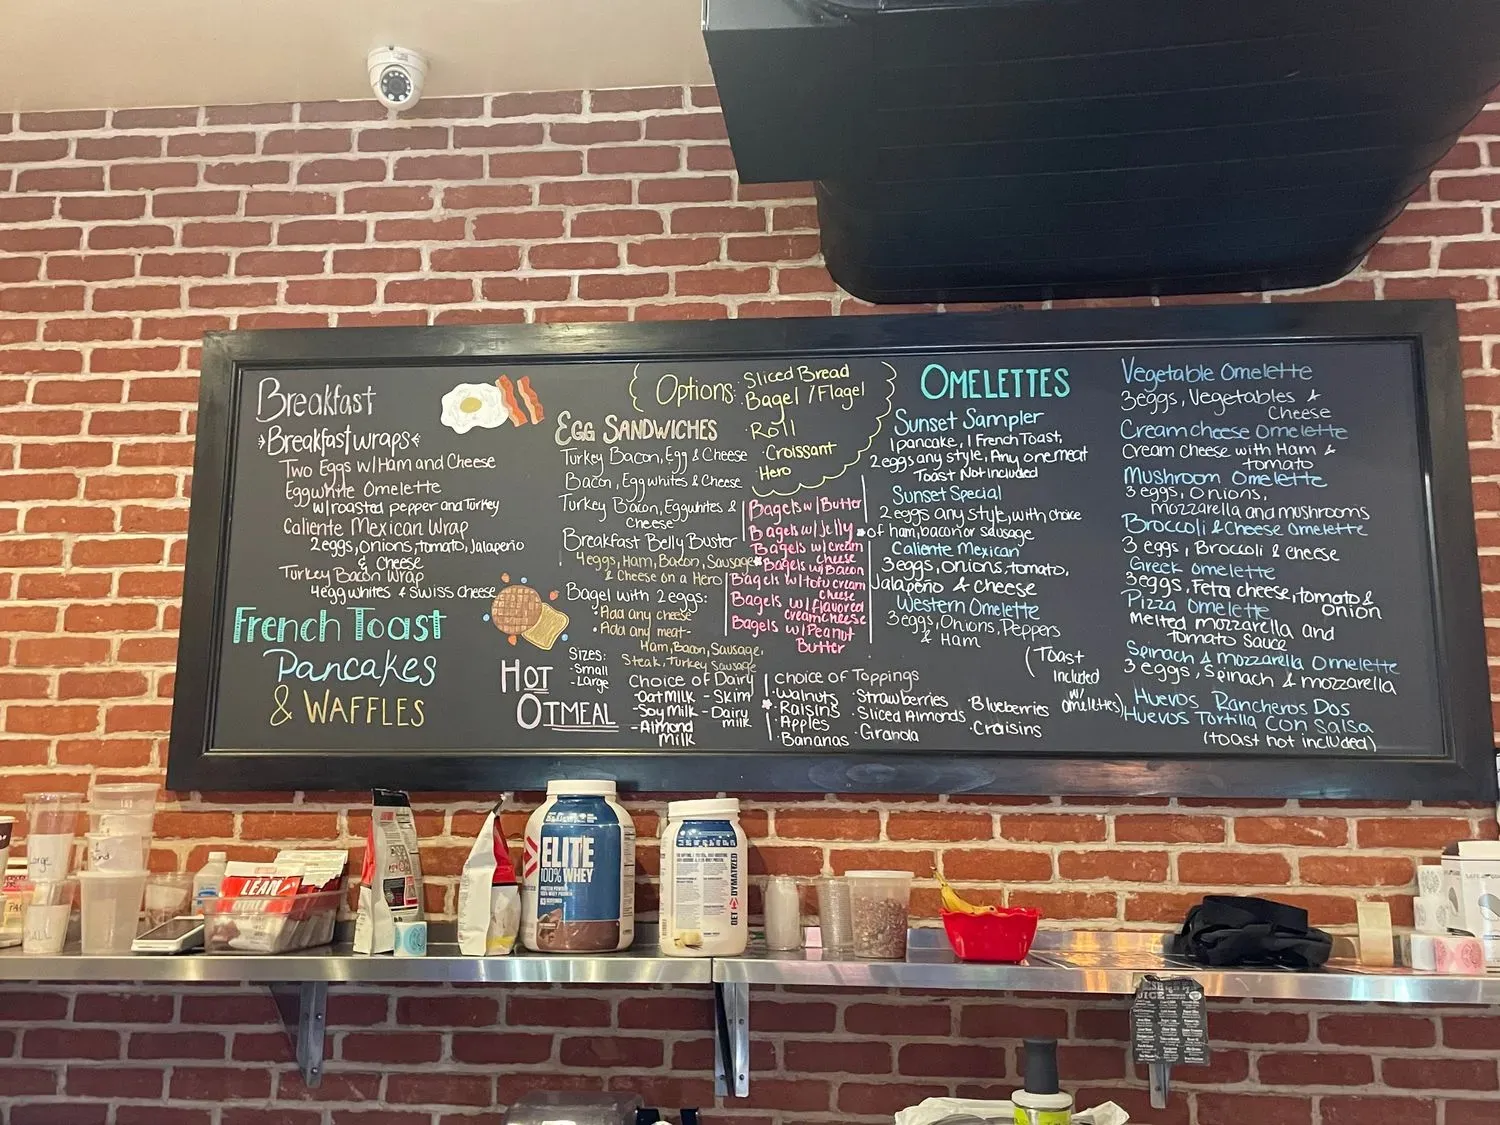 Breakfast
Breakfast wraps
Two Eggs w/Ham and Cheese
Eggwhite Omelette
w/roasted pepper and Turkey
Caliente Mexican Wrap
2eggs, onions, tomato, Jalapeño
& Cheese
Turkey Bacon Wrap
4eggwhites & Swiss cheese
French Toast
Pancakes
& WAFFLES
Options:
Sliced Bread
Bagel / Flagel
Roll
Croissant
Hero
EGG SANDWICHES
Turkey Bacon, Egg & Cheese
Bacon, Eggwhites & Cheese
Turkey Bacon, Eggwhites &
Cheese
Breakfast Belly Buster
4eggs, Ham, Bacon, Sausage
& Cheese on a Hero
Bagel with 2eggs:
Add any cheese
Add any meat-
Ham, Bacon, Sausage,
Steak, Turkey Sausage
Bagels w/Butter
Bagels w/Jelly
Bagels w/cream
cheese
Bagels w/Bacon
Bagels w/tofu cream
cheese
Bagels w/flavored
cream cheese
Bagels w/Peanut
Butter
HOT
OTMEAL
Sizes:
-Small
-Large
Choice of Dairy
-Oat milk
-Soy milk
-Almond
milk
-Skim
-Dairy
milk
choice of Toppings
Walnuts
Raisins
Apples
Bananas
Strawberries
Sliced Almonds
Granola
Blueberries
Craisins
OMELETTES
Sunset Sampler
1 pancake, 1 French Toast,
2eggs any style, Any one meat
Toast Not included
Sunset Special
2eggs any style, with choice
of ham, bacon or sausage
Caliente Mexican
3eggs, onions, tomato,
Jalapeño & Cheese
Western Omelette
3eggs, Onions, Peppers
& Ham
(Toast
included
w/
omelettes)
Vegetable Omelette
3eggs, Vegetables &
Cheese
Cream cheese Omelette
Cream cheese with Ham &
tomato
Mushroom Omelette
3 eggs, Onions,
mozzarella and mushrooms
Broccoli & Cheese Omelette
3 eggs, Broccoli & cheese
Greek omelette
3eggs, Feta cheese, tomato &
onion
Pizza Omelette
Melted mozzarella and
tomato sauce
Spinach & mozzarella Omelette
3 eggs, Spinach & mozzarella
Huevos Rancheros Dos
Huevos Tortilla Con Salsa
(toast not included)
Large
LEAN
ELITE
100% WHEY
DYMATIZE
JUICE